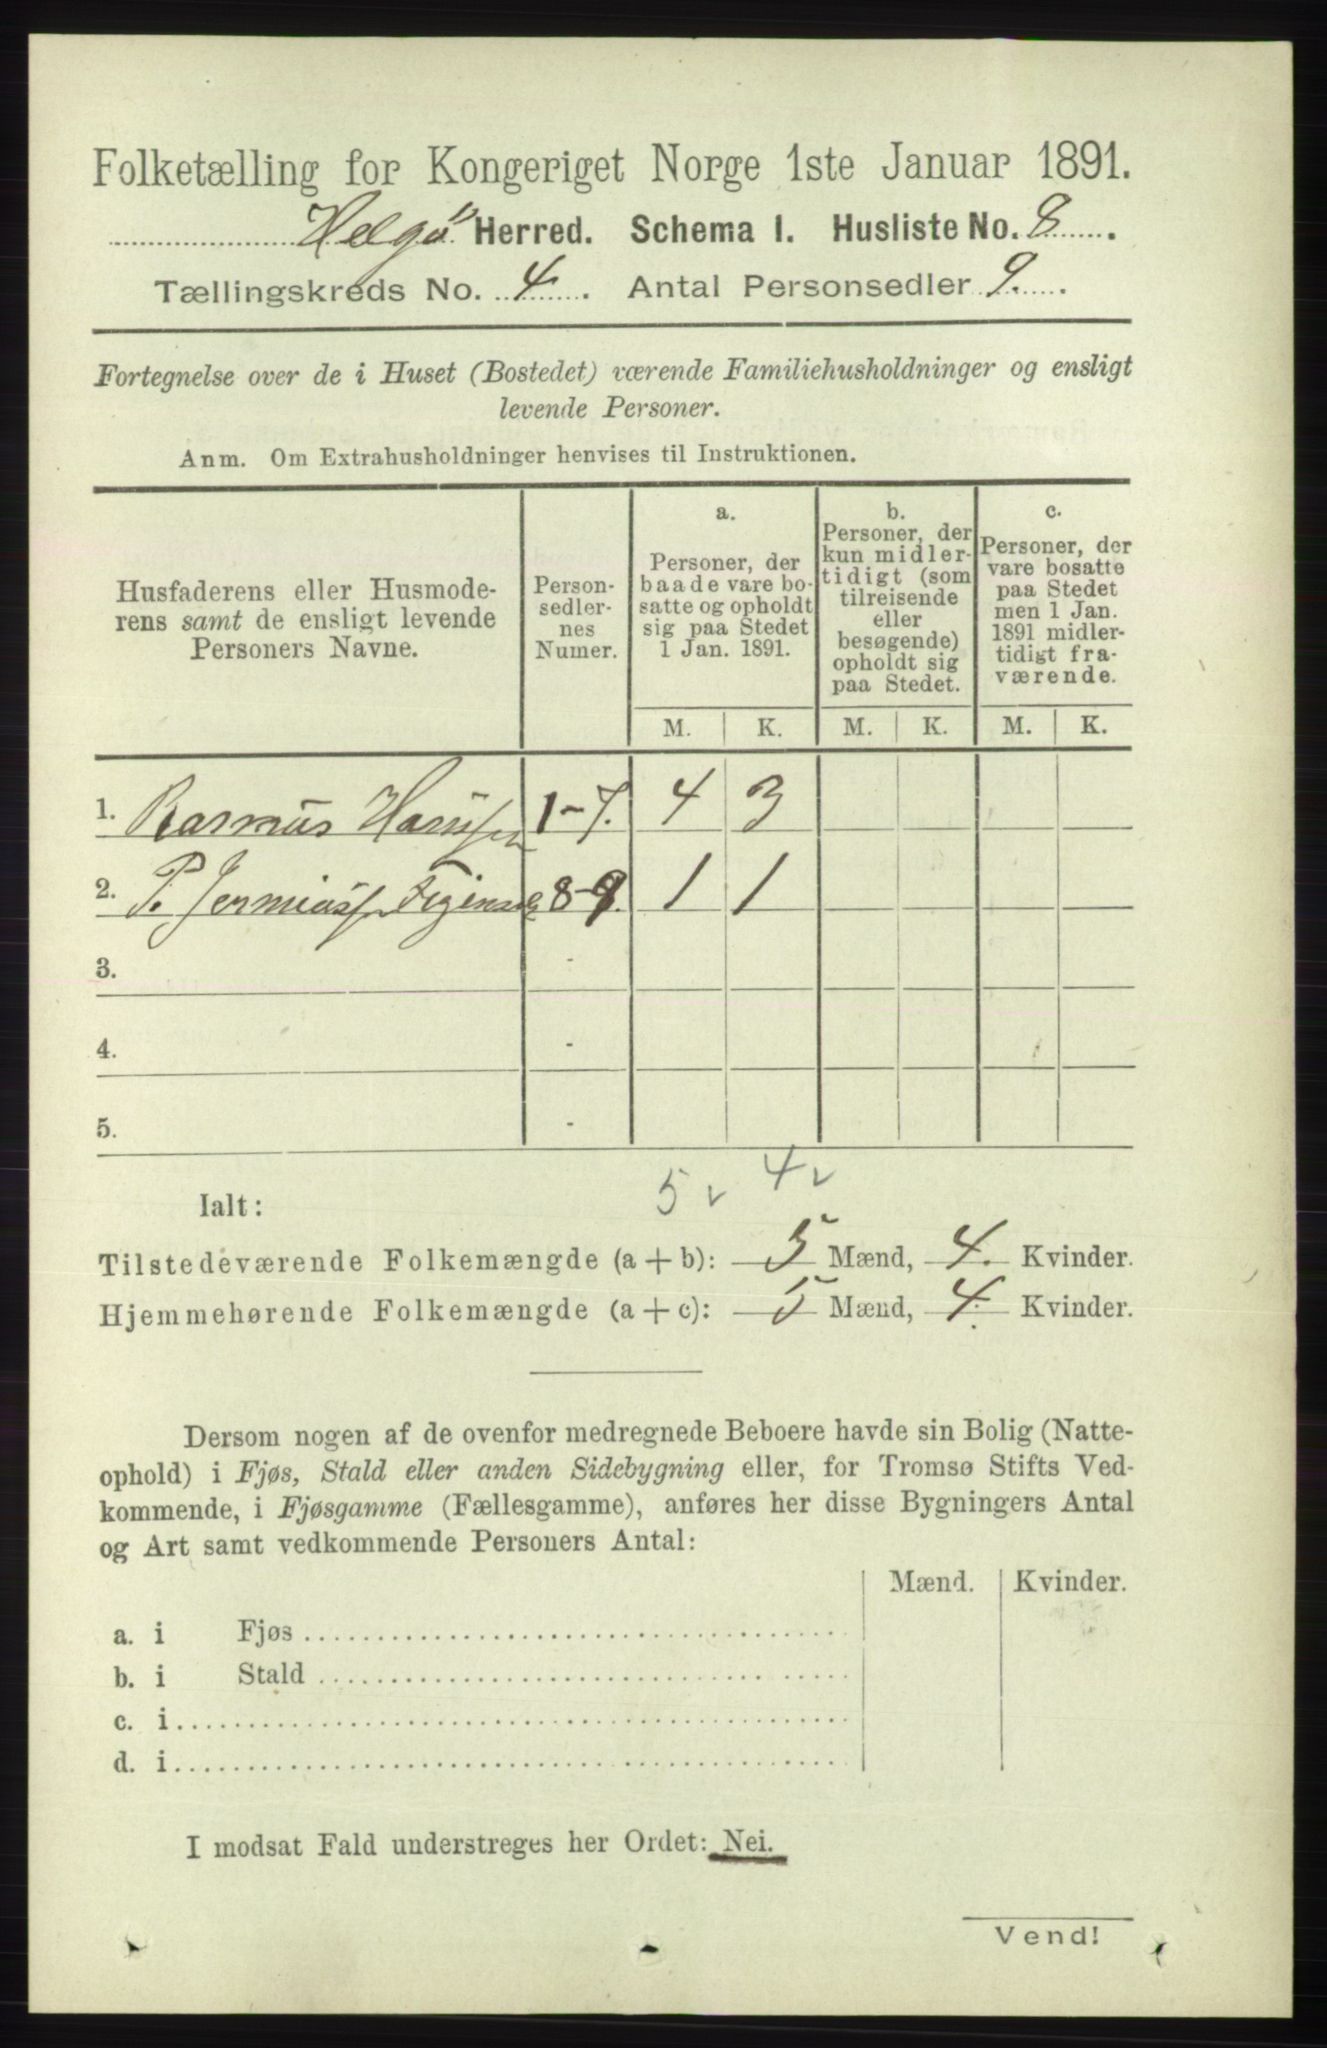 Folketælling for Kongeriget Norge 1ste Januar 1891.
Helgö Herred. Schema I. Husliste No. 8.
Tællingskreds No. 4. Antal Personsedler 9.
Fortegnelse over de i Huset (Bostedet) værende Familiehusholdninger og ensligt
levende Personer.
Anm. Om Extrahusholdninger henvises til Instruktionen.
Husfaderens eller Husmode-
rens samt de ensligt levende
Personers Navne.
Person-
sedler-
nes
Numer.
a.
Personer, der
baade vare bo-
satte og opholdt
sig paa Stedet
1 Jan. 1891.
b.
Personer, der
kun midler-
tidigt (som
tilreisende
eller
besøgende)
opholdt sig
paa Stedet.
c.
Personer, der
vare bosatte
paa Stedet
men 1 Jan.
1891 midler-
tidigt fra-
værende.
M. K. M. K. M. K.
1. Rasmus Hansen 1-7. 4 3
2. P. Jermiassen 8-9. 1 1
3. -
4. -
5. -
5 v 4 v
Ialt:
Tilstedeværende Folkemængde (a + b): 5 Mænd, 4. Kvinder.
Hjemmehørende Folkemængde (a + c): 5 Mænd, 4. Kvinder.
Dersom nogen af de ovenfor medregnede Beboere havde sin Bolig (Natte-
ophold) i Fjøs, Stald eller anden Sidebygning eller, for Tromsø Stifts Ved-
kommende, i Fjøsgamme (Fællesgamme), anføres her disse Bygningers Antal
og Art samt vedkommende Personers Antal:
Mænd. Kvinder.
a. i Fjøs
b. i Stald
c. i
d. i
I modsat Fald understreges her Ordet: Nei.
Vend!